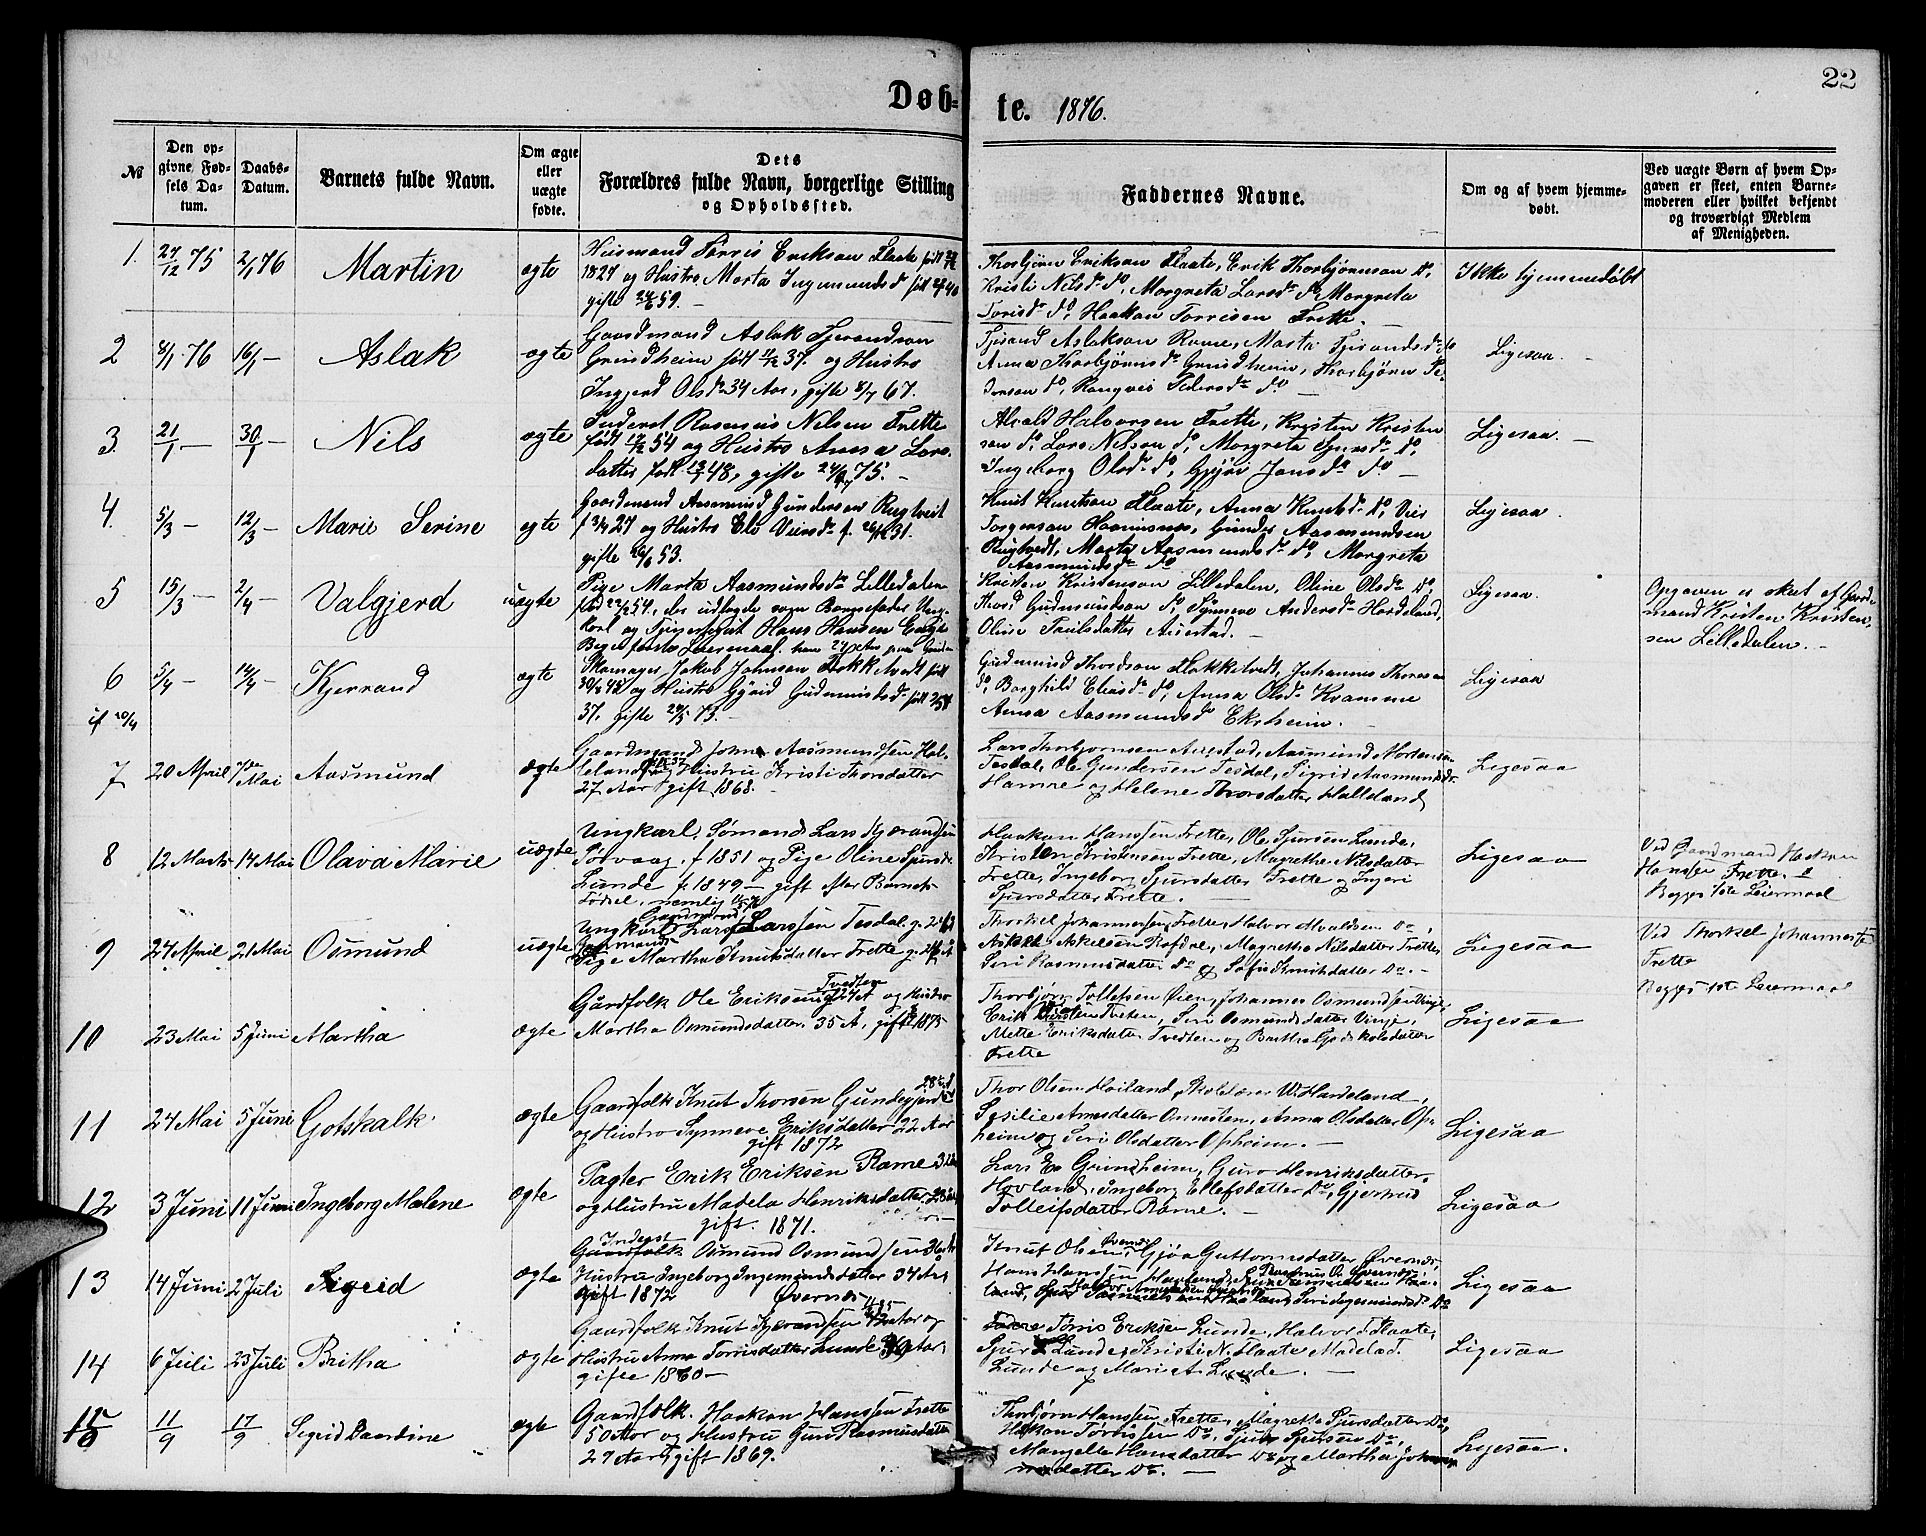 22
Døb-
te. 1876.
№
Den op-
givne Fød-
sels Da-
tum.
Daabs-
Datum.
Barnets fulde Navn.
Om ægte
eller
uægte
fødte.
Dets
Forældres fulde Navn, borgerlige Stilling
og Opholdssted.
Faddernes Navne.
Om og af hvem hjemme-
døbt.
Ved uægte Børn af hvem Op-
gaven er skeet, enten Barne-
moderen eller hvilket bekjendt
og troværdigt Medlem
af Menigheden.
1. 27/12 75 2/1 76 Martin ægte
Huusmand Tørris Eriksen Flaate født
1827 og Hustro Marta Ingemundsd
gifte 59. –
Thorbjørn Eriksen Flaate, Erik Thorbjørnson do,
Kristi Nilsdr do, Margreta Larsdr do, Margreta
Torisdr do, Haakon Torrisen Frette.
Ikke hjemmedøbt
2 8/1 76 16/1 – Aslak ægte
Gaardmand Aslak Tjerandson
Grindheim født 37. og Hustro
Ingjerd Olsdr 34 Aar, gifte 67.
Tjerand Aslakson Rame, Marta Tjerandsdr do
Anna Thorbjørnsdr Grindheim, Thorbjørn Pe-
derson do, Rangvei Pedersdr do –
Ligesaa. –
3. 21/1 – 30/1 – Nils ægte
Inderst Rasmus Nilsen Frette
født 54 og Hustro Anna Lars-
datter født 48, gifte 75. –
Alvald Halvorsen Frette, Kristen Kristen
sen do, Lars Nilsen do, Margreta Sjursdr do,
Ingeborg Olsdr do, Jansdr do –
Ligesaa. –
4. 5/3 – 12/3 – Marie Serine ægte
Gaardmand Aasmund Gunderson Rugtveit
f. 27 og Hustro f. 31.
gifte 53.
Knut Knutson Flaate, Anna Knutsdr do,
Torgerson Gunder Aasmundsen
Rugtvedt, Marta Aasmundsdr do, Margreta
Aasmundsdr do
Ligesaa.
5 15/3 – 2/4 – Valgjerd uægte
Pige Marta Aasmundsdr Lilledalen
født 54, der udlagde som Barnefader Ung-
karl og Hans Hansen
Begges første Leiermaal.
Kristen Kristenson Lilledalen, Oline Olsdr do,
Thord Gudmundson do, Synneve Andersdr Hardeland,
Oline Truulsdatter Austad. –
Ligesaa.
Opgaven er skeet af Gaard-
mand Kristen Kristen-
sen Lilledalen. –
6 5/4 – 14/4 – Kjerrand ægte
Skomager Jakob Johnsen Flokketvedt født
48 og Hustro Gyrid Gudmundsdr født
37, gifte 73. –
Gudmund Thordson Flokketvedt, Johannes Thorson
do, Borghild Eliasdr do, Anna Olsdr Kvamme
Anna Aasmundsdr Ekrheim.
Ligesaa
7 20 April 7de Mai Aasmund ægte
Gaardmand John Aasmundsen Hal-
leland og Hustru Kristi Thorsdatter
27 Aar gift 1868. –
Lars Thorbjørnsen Austad, Aasmund Mortensen
Tesdal, Ole Gundersen Tesdal, Sigrid Aasmundsdr
Hamre og Helene Thorsdatter Halleland
Ligesaa
8 12 Marts 14 Mai Olava Marie uægte
Ungkarl, Sømand Lars Kjærandsen
Tølvaag, f 1851 og Pige Oline Sjursdr
Lunde f. 1849 – gift efter Barnets
Fødsel, nemlig
Haakon Hanssen Frette, Ole Sjursen Lunde,
Kristen Kristensen Frette, Magrethe Nilsdatter
Frette, Ingeborg Sjursdatter Frette og Ingeri
Sjursdatter Frette. –
Ligesaa
Ved Gaardmand Haakon
Hansen Frette.
Begges 1ste Leiermaal
9 24 April 21 Mai Osmund uægte
Ungkarl Gaardmands Lars Larssen Tesdal
Pige Martha Knutsdatter Frette
Thorkel Johannessen Frette, Halvor Alvaldsen Do,
Askel Askelsen Røfdal, Magrethe Nilsdatter Frette,
Siri Rasmusdatter Do og Sofie Knutsdatter Do. –
Ligesaa
Ved Thorkel Johannessen
Frette
Begges 1ste Leiermaal
10 23 Mai 5 Juni Martha ægte
Gaardfolk Ole Eriksen Tvedten 27 A og Hustro
Martha Osmundsdatter 35 A, gift 1875
Thorbjørn Tollefsen Øien, Johannes Osmundsen Vinje,
Erik Tveten, Siri Osmundsdatter Vinje,
Mette Eriksdatter Tvedten og Brithe Godskalsdatter
Frette
Ligesaa
11 24 Mai 5 Juni Gotskalk ægte
Gaardfolk Knut Thorsen Gundegjerd 28
og Hustro Synneve Eriksdatter 22 Aar
gift 1872
Thor Olsen Høiland, Skolelærer W. Hardeland,
Sesilie Arnesdatter, Anna Olsdatter Op-
heim og Siri Olsdatter Opheim. –
Ligesaa
12 3 Juni 11 Juni Ingeborg Malene ægte
Pagter Erik Eriksen Rame
og Hustru Madela Henriksdatter 28
gift 1871.
Lars E. Grindheim, Guro Henriksdatter
Hovland, Ingeborg Ellefsdatter Do, Gjertrud
Tolleifsdatter Rame. –
Ligesaa
13 14 Juni 2 Juli Sigrid ægte
Inderst
Gaardfolk Osmund Osmundsen
Hustru Ingeborg Ingemundsdatter 34 Aar
gift 1872
Knut Olsen Øvernes, Gjøa Guttormsdatter Øvernes,
Hans Hanssen
Siri Ingemundsdr Do
Ligesaa
14 6 Juli 23 Juli Britha ægte
Øvernæs
Gaardfolk Knut Kjærandsen og
Hustru Anna Tørrisdatter Lunde Aar,
gifte 1860 –
Tørris Eriksen Lunde, Halvor T. Flaate,
Sjur Lunde, Kristi N. Flaate Madela T.
Lunde og Mari A. Lunde. –
Ligesaa
15 11/9 17/9 Sigrid Daardine ægte
Gaardfolk. Haakon Hanssen Frette
50 Aar og Hustru Guri Rasmusdatter
27 Aar, gift 1869.
Thorbjørn Hanssen Frette, Magrethe Sjursdatter Do,
Haakon Tørrissen Do, Sjur Sjursen Do,
Mangele Hansdatter Do og Martha Johannes
datter Do. –
Ligesaa.